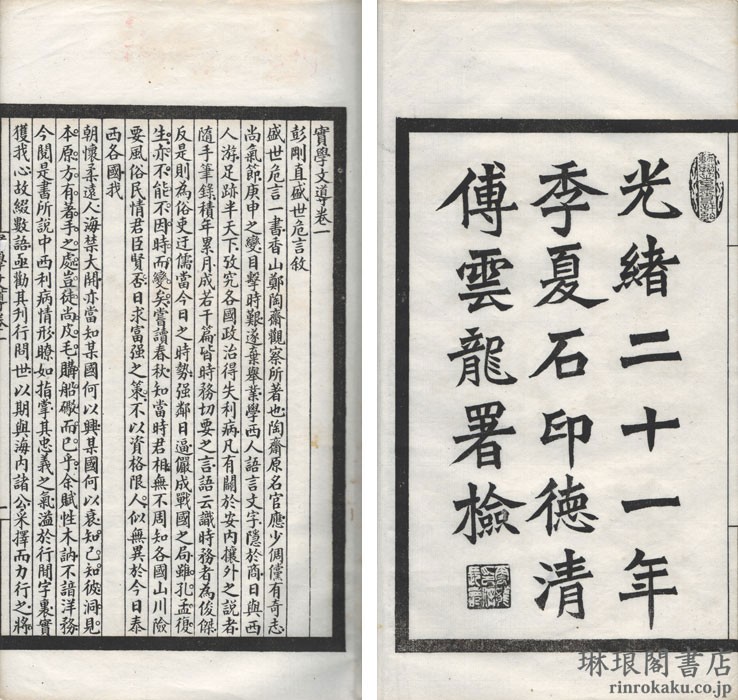 光緒二十一年
季夏石印德清
傅雲龍署檢
實學文導卷一
彭剛直盛世危言敘
盛世危言一書香山鄭陶齋觀察所著也陶齋原名官應少倜儻有奇志
尚氣節庚申之變目擊時艱遂棄舉業學西人語言文字隱於商日與西
人游足跡半天下攷究各國政治得失利病凡有關於安內攘外之說者
隨手筆錄積年累月成若干篇皆時務切要之言語云識時務者為俊傑
反是則為俗吏迂儒當今日之時勢强鄰日逼儼成戰國之局雖孔孟復
生亦不能不因時而變矣嘗讀春秋知當時君相無不周知各國山川險
要風俗民情君臣賢否日求富强之策不以資格限人似無異於今日泰
西各國我
朝懷柔遠人海禁大開亦當知某國何以興某國何以衰知己知彼洞見
本原方有著手之處豈徒尚皮毛購船礮而已乎余賦性木訥不諳洋務
今閱是書所說中西利病情形瞭如指掌其忠義之氣溢於行間字裏實
獲我心故綴數語亟勸其刋行問世以期與海內諸公采擇而力行之將
琳琅閣書店
rinrokaku.co.jp